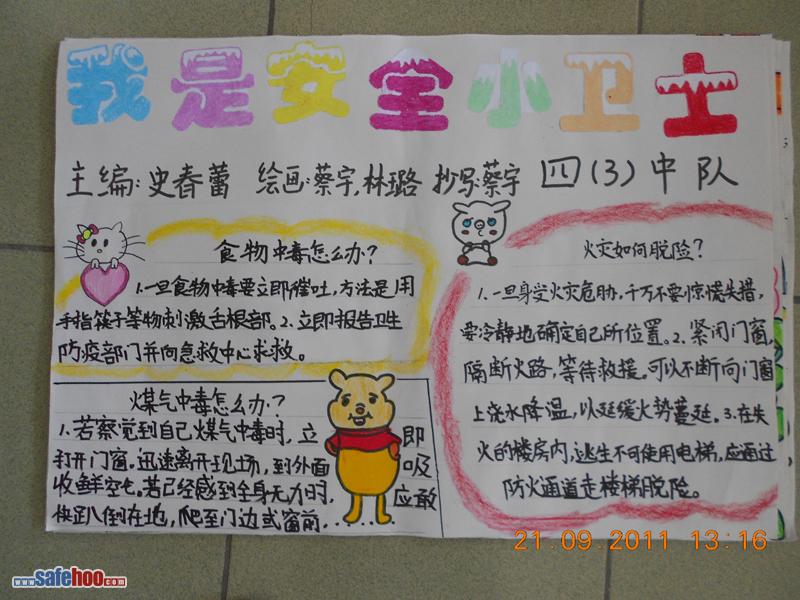 我是安全小卫士
主编:史春蕾 绘画:蔡宇,林璐 抄写:蔡宇 四(3)中队
食物中毒怎么办?
1.一旦食物中毒要立即催吐,方法是用
手指筷子等物刺激舌根部。2.立即报告卫生
防疫部门并向急救中心求救。
煤气中毒怎么办?
1.若察觉到自己煤气中毒时,立即
打开门窗。迅速离开现场,到外面吸
收鲜空气。若已经感到全身无力时,应敢
快趴倒在地,爬至门边或窗前......
火灾如何脱险?
1.一旦身受火灾危胁,千万不要惊慌失措,
要冷静地确定自己所位置。2.紧闭门窗,
隔断火路,等待救援。可以不断向门窗
上浇水降温,以延缓火势蔓延。3.在失
火的楼房内,逃生不可使用电梯,应通过
防火通道走楼梯脱险。
21.09.2011 13:16
www.safehoo.com